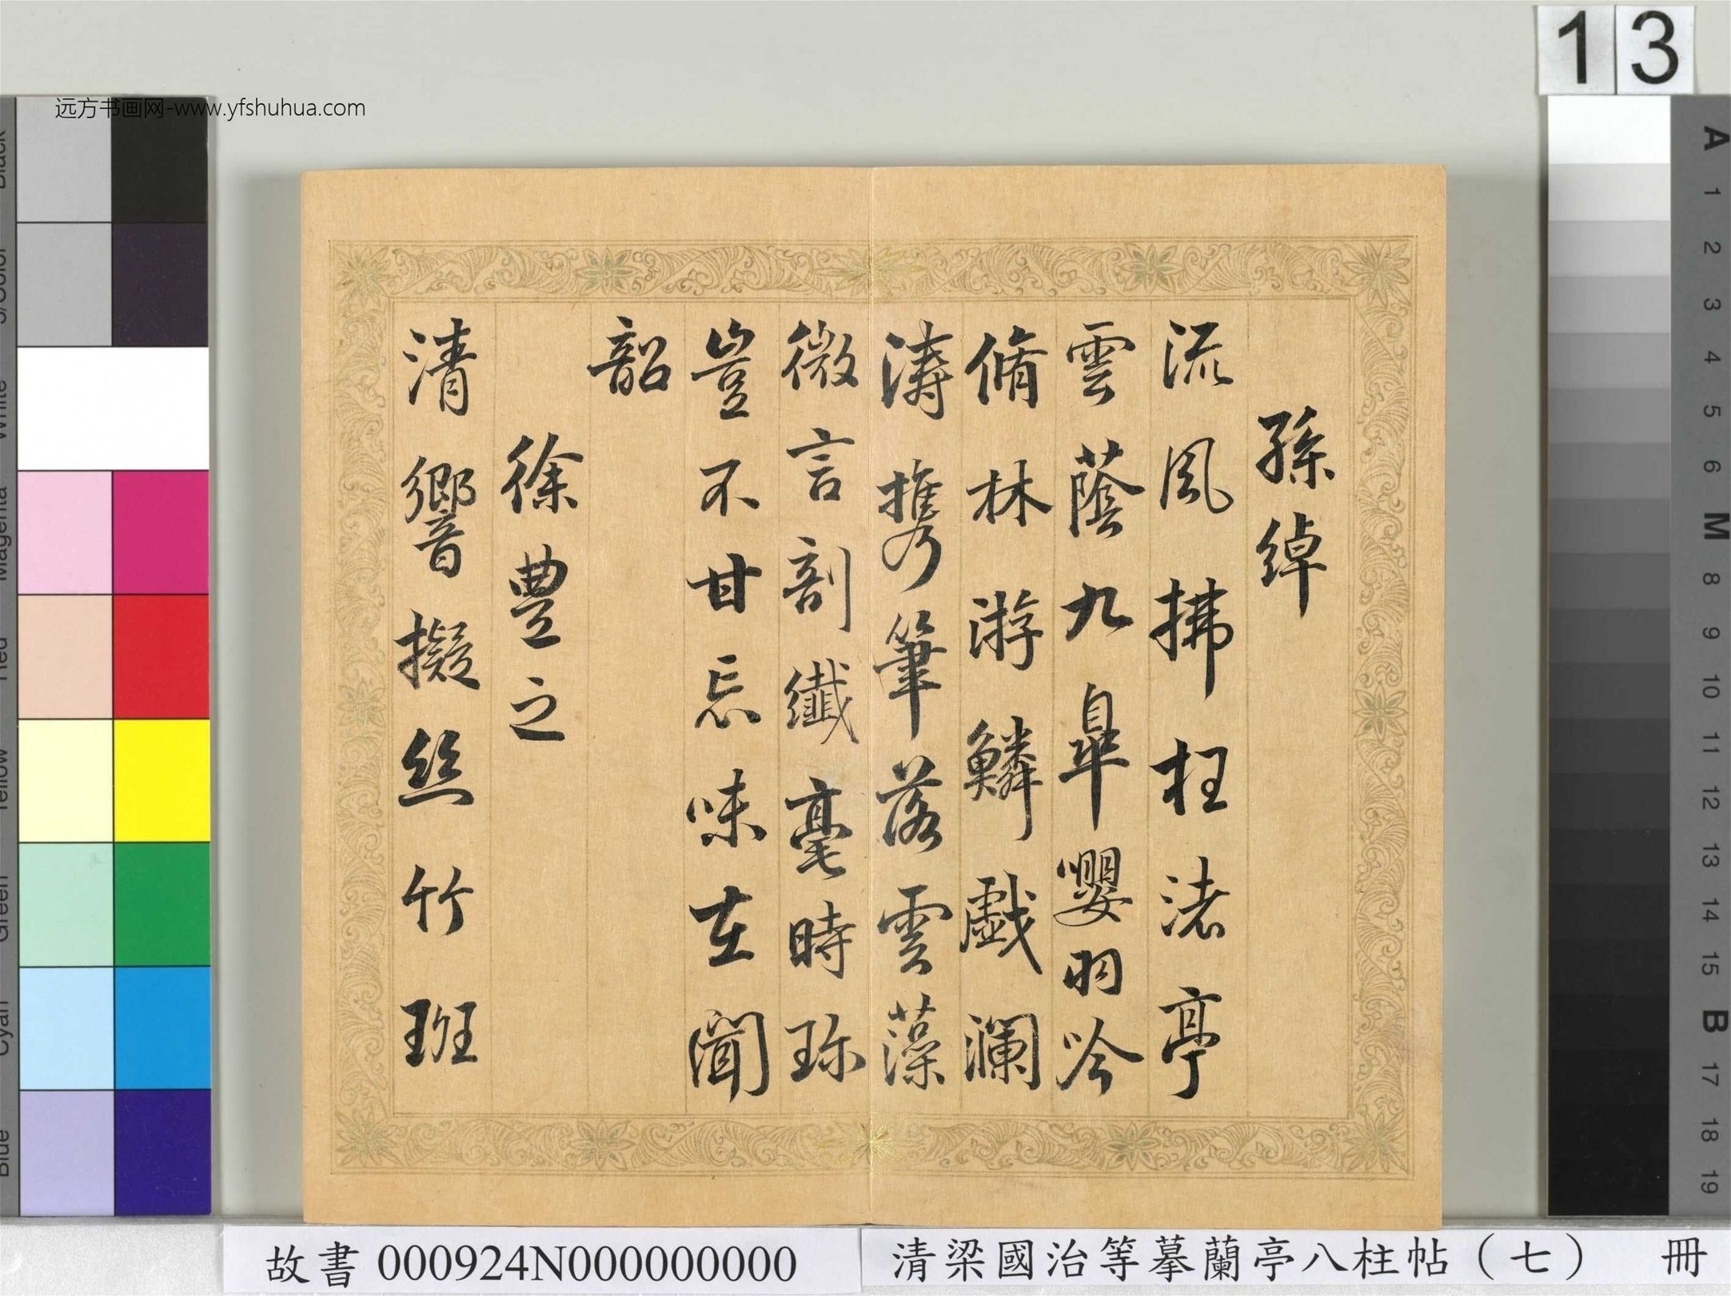 孫綽
流風拂枉渚亭
雲蔭九皐嚶羽吟
脩林游鱗戲瀾
濤攜筆落雲藻
微言剖纖毫時珎
豈不甘忘味在聞
韶
徐豊之
清響擬絲竹班
13
远方书画网-www.yfshuhua.com
A
1
2
3
4
5
6
M
8
9
10
11
12
13
14
15
B
17
18
19
Black
3/Color
White
Magenta
Red
Yellow
Green
Cyan
Blue
故書 000924N000000000
清梁國治等摹蘭亭八柱帖（七） 冊